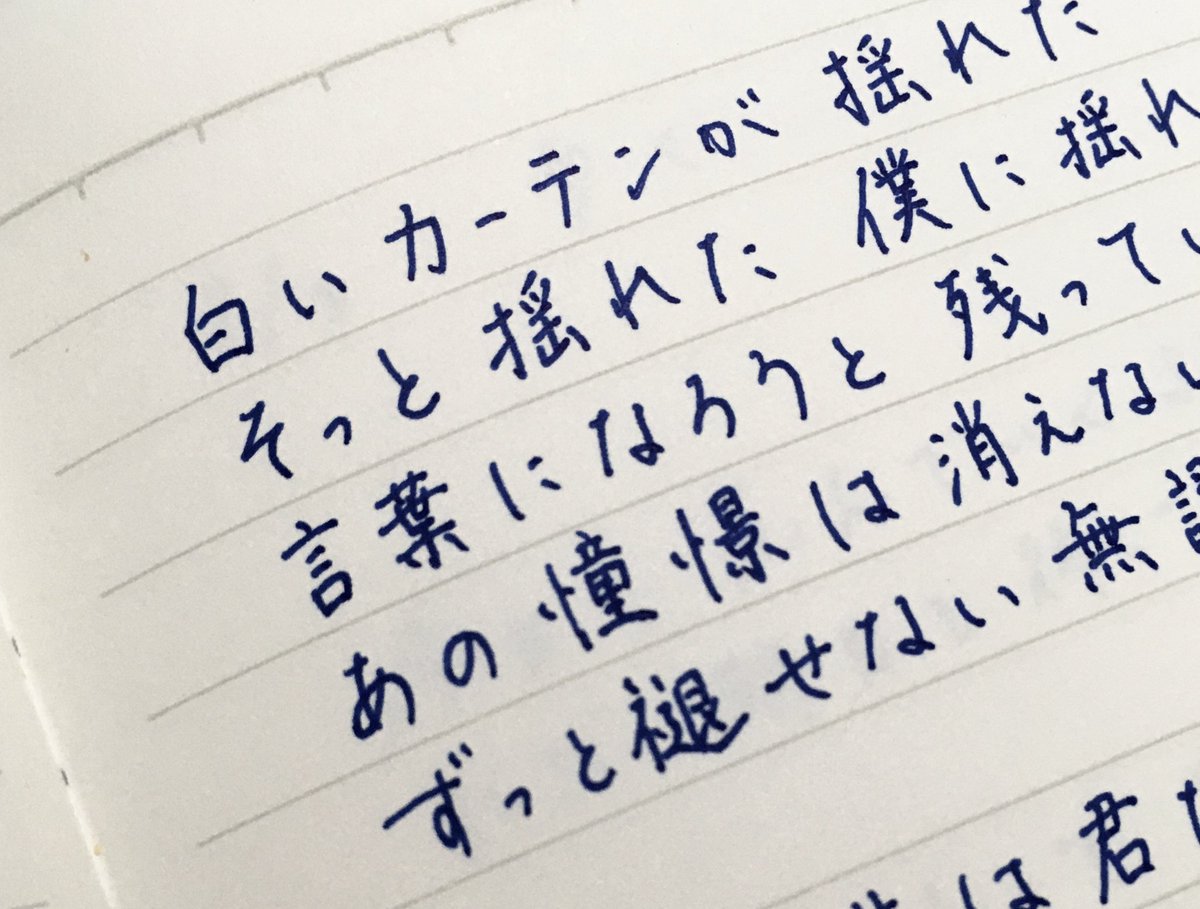 白いカーテンが 揺れた
そっと 揺れた 僕に揺れ
言葉になろうと 残ってい
あの憧憬は消えない
ずっと褪せない 無
は君